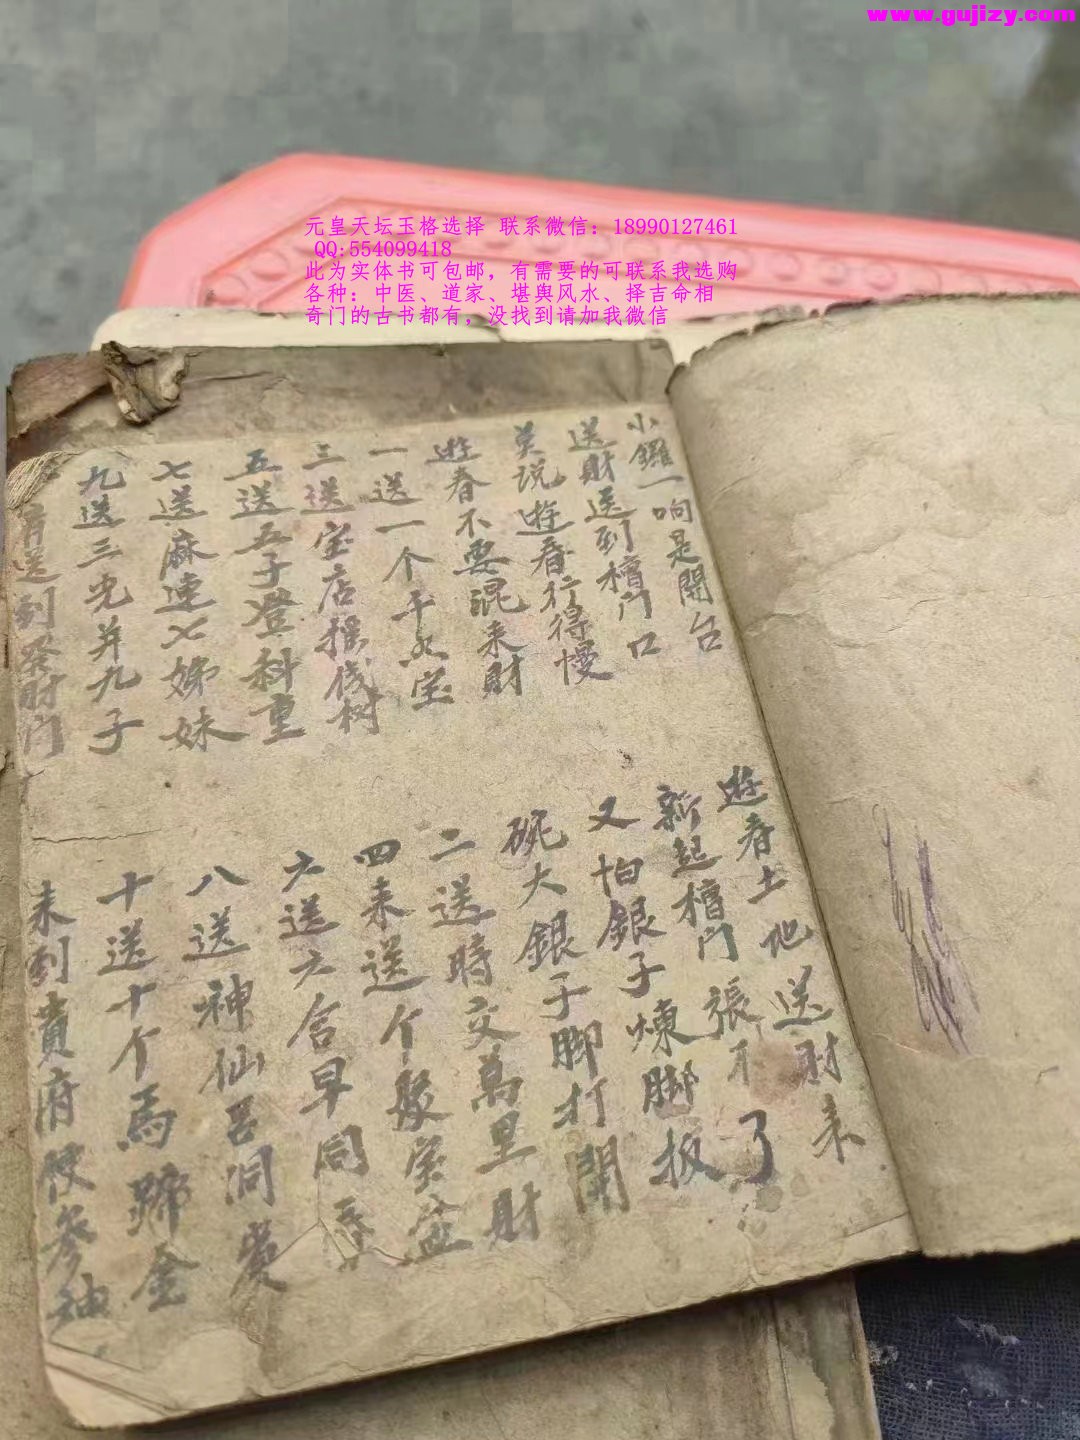 www.gujizy.com
元皇天坛玉格选择 联系微信：18990127461
QQ:554099418
此为实体书可包邮，有需要的可联系我选购
各种：中医、道家、堪舆风水、择吉命相
奇门的古书都有，没找到请加我微信
小鑼一响是開台
遊春土地送財来
送財送到檀门口
新起檀门張不了
莫说遊春行得慢
又怕銀子煉脚扳
遊春不要混来財
碗大銀子脚打開
一送一个千年宝
二送時交萬里財
三送宝店摇伐树
四来送个聚宝盆
五送五子登科重
六送六合早同
七送麻連七姊妹
八送神仙呂洞賓
九送三光并九子
十送十个馬蹄金
送到發財门
来到貴府便参神